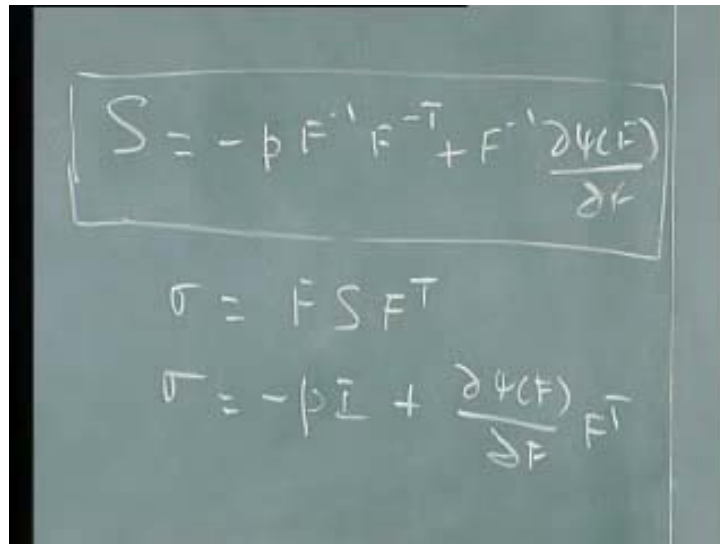 S = -p F⁻¹ F⁻ᵀ + F⁻¹ ∂ψ(F)/∂F
σ = F S Fᵀ
σ = -p I + ∂ψ(F)/∂F Fᵀ